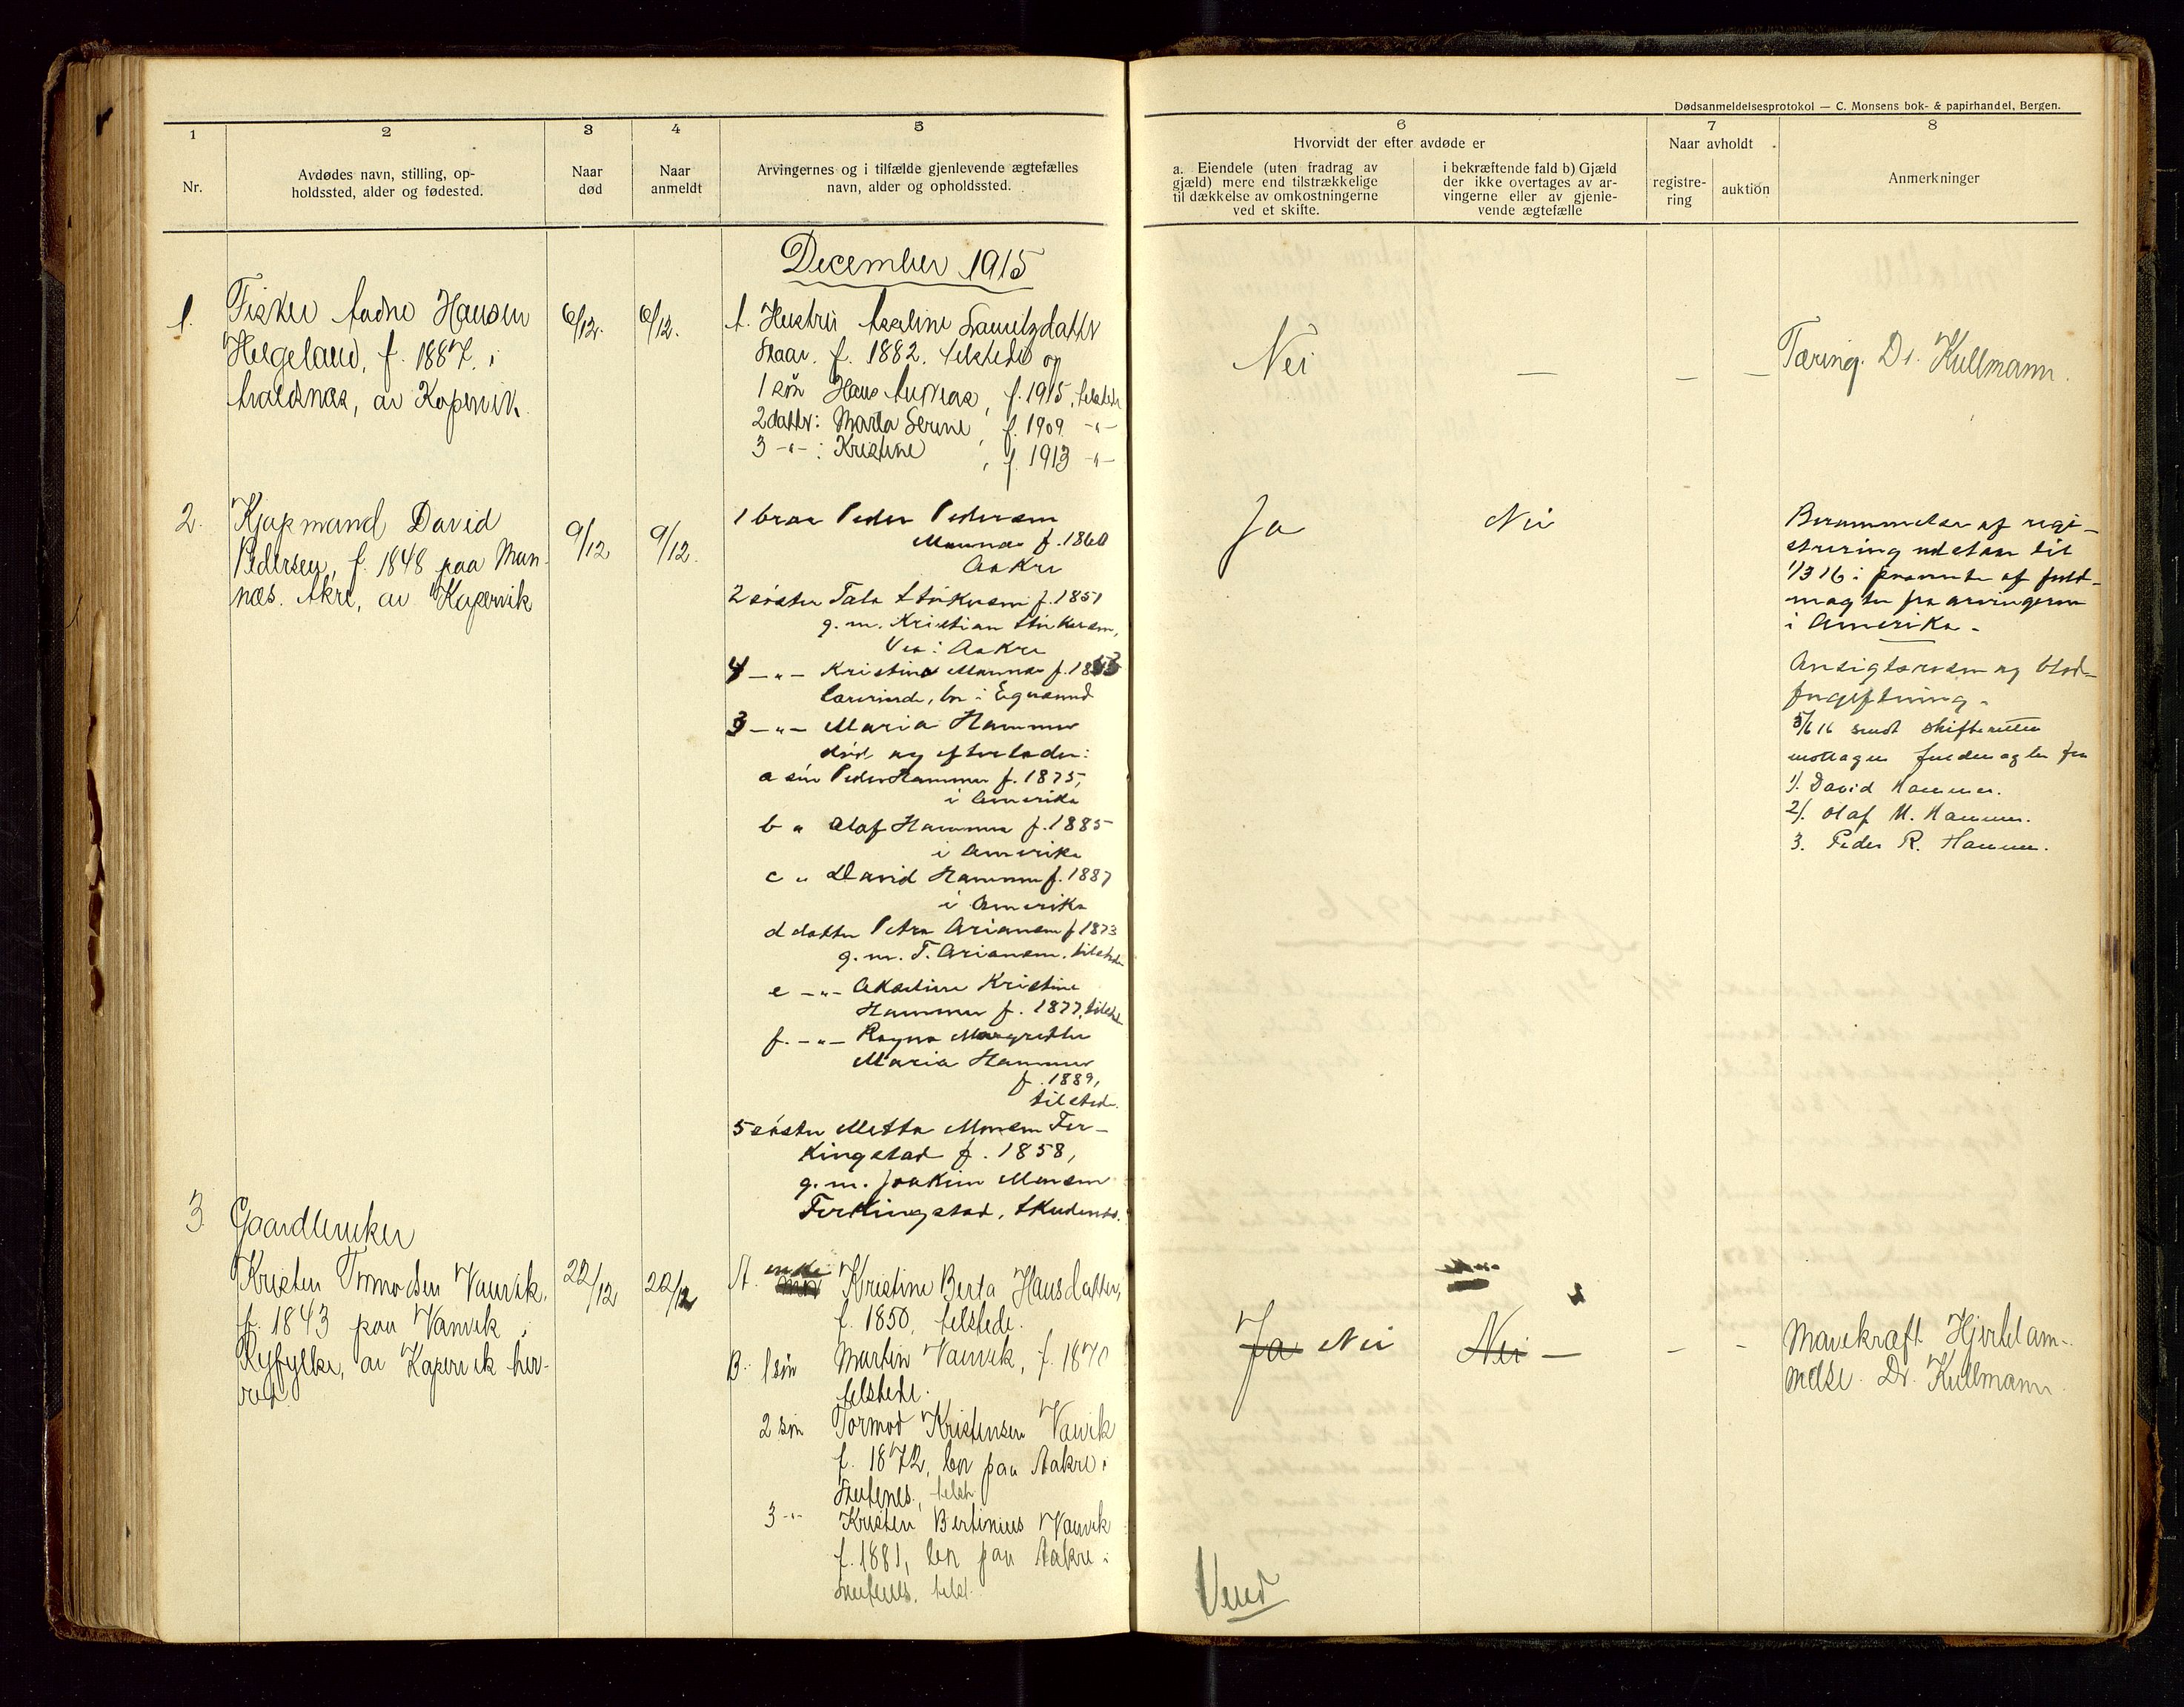 Dødsanmeldelsesprotokol — C. Monsens bok- & papirhandel, Bergen.
1
2
3
4
5
6
7
8
Nr.
Avdødes navn, stilling, op-
holdssted, alder og fødested.
Naar
død
Naar
anmeldt
Arvingernes og i tilfælde gjenlevende ægtefælles
navn, alder og opholdssted.
Hvorvidt der efter avdøde er
a. Eiendele (uten fradrag av
gjæld) mere end tilstrækkelige
til dækkelse av omkostningerne
ved et skifte.
i bekræftende fald b) Gjæld
der ikke overtages av ar-
vingerne eller av gjenle-
vende ægtefælle
Naar avholdt
registre-
ring
auktion
Anmerkninger
December 1915
1.
Fisker Hansen
Helgeland, f. 1887. i
av Kopervik
6/12.
6/12.
1. Hustru Lauritzdatter
f. 1882. tilstede og
1 søn Hans Andreas, f. 1915, tilstede
2 datter: Marta Serine, f. 1909 -"-
3 -"- : Kristine, f. 1913 -"-
Nei
—
—
—
Tæring. Dr. Kullmann.
2.
Kjøpmand David
Pedersen, f. 1848 paa Mun-
næs. Akre, av Kopervik
9/12
9/12.
1 bror Peder Pedersen
Munnæs f. 1860
Aakre
2 søster Tala Stirkersen f. 1851
g. m. Kristian Stirkersen,
Vea i Aakre
4 -"- Kristine Munnæs f. 18
lærerinde, bor i Egersund
3 -"- Maria Hammer
død og efterlader:
a søn Peder Hammer f. 1875,
i Amerika
b " Olaf Hammer f. 1885
i Amerika
c " David Hammer f. 1887
i Amerika
d datter Petra Ariansen f 1873
g. m. T. Ariansen. tilstede
e -"- Akseline Kristine
Hammer f. 1877, tilstede
f. -"- Ragna Margrethe
Maria Hammer
f. 1889,
tilstede.
5 søster Metta Monsen Fer-
kingstad f. 1858,
g. m. Joakim Monsen
Ferkingstad, Skudenes.
Ja
Nei
Berammelse af regi-
strering udstaar til
1/3 16 i paavente af fuld-
magter fra arvingerne
i Amerika -
Ansigtsrosen og blod-
forgiftning.
5/6 16 sendt skifteretten
mottagne fuldmagter fra
1/. David Hammer.
2/. Olaf M. Hammer.
3. Peder R. Hammer.
3
Gaardbruker
Kristen Tormodsen Vanvik,
f. 1843 paa Vanvik i
Ryfylke, av Kopervik her-
red.
22/12
22/12
A. enke Kristine Berta Hansdatter,
f. 1850, tilstede.
B. 1 søn Martin Vanvik, f. 1870
tilstede.
2 søn Tormod Kristensen Vanvik
f. 1872, bor paa Aakre i
Skudenes, tilst.
3 -"- Kristen Bertinius Vanvik
f. 1881, bor paa Aakre i
Skudenes. tilst.
Ja Nei
Nei —
-
-
Mavekræft. Hjertelam-
melse. Dr. Kullmann.
Vend